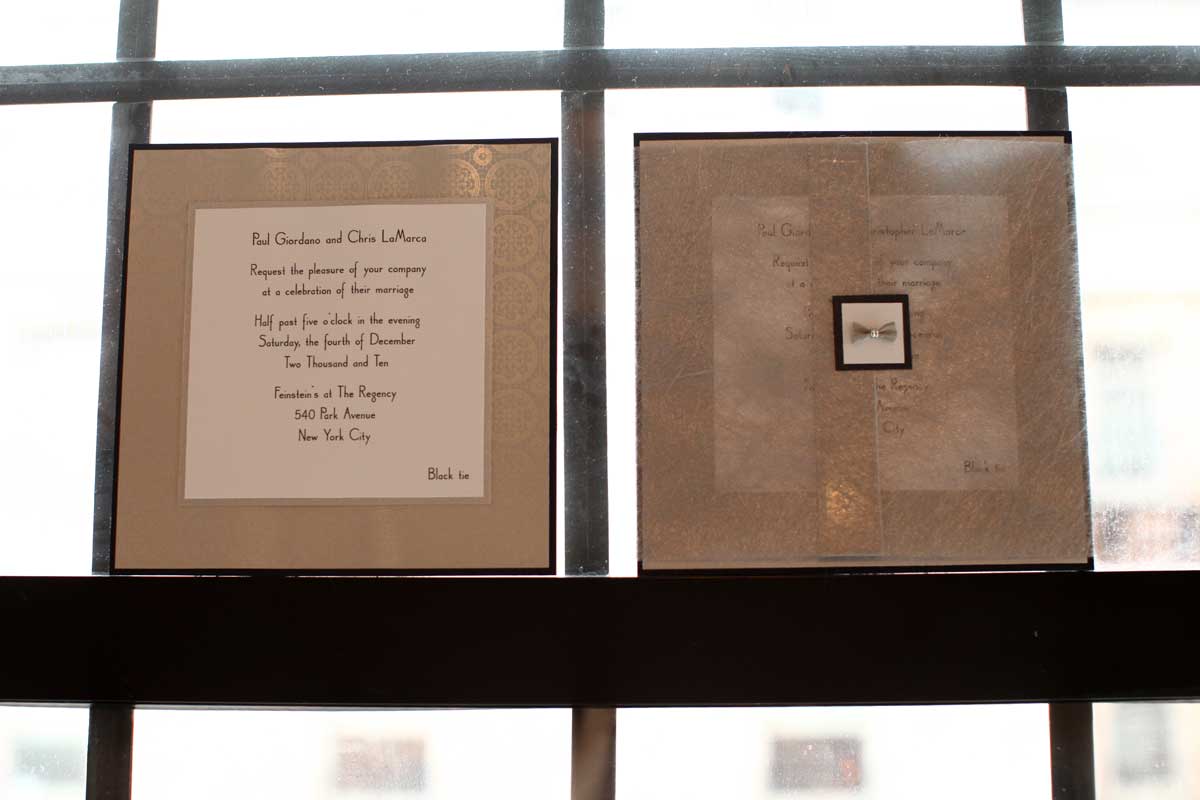 Paul Giordano and Chris LaMarca
Request the pleasure of your company
at a celebration of their marriage
Half past five o'clock in the evening
Saturday, the fourth of December
Two Thousand and Ten
Feinstein's at The Regency
540 Park Avenue
New York City
Black tie
Paul LaMarca
of your company
their marriage
The Regency
City
Black tie